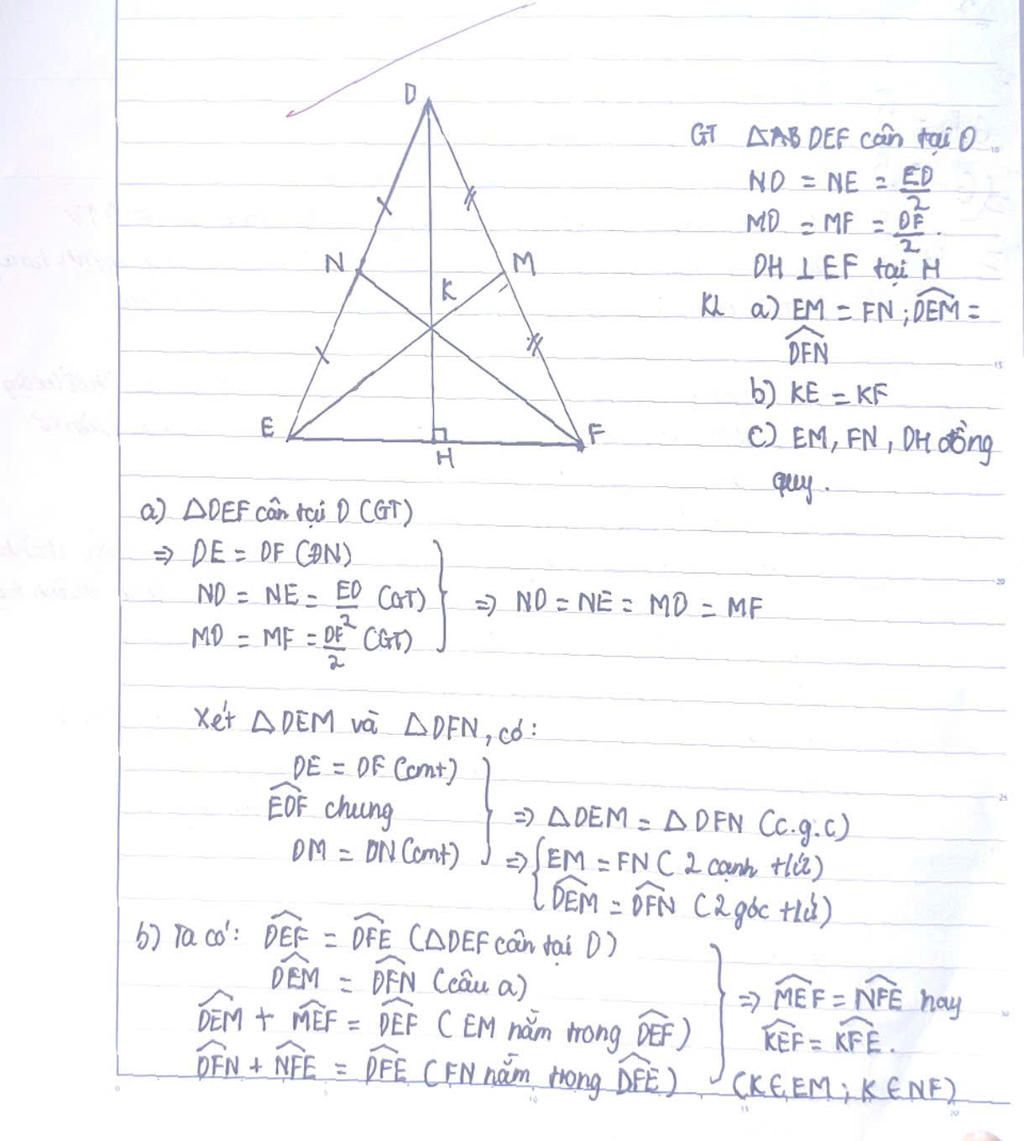 D
N
M
K
E
F
H
GT △AB DEF cân tại D
ND = NE = ED/2
MD = MF = DF/2.
DH ⊥ EF tại H
KL a) EM = FN ; DEM^ =
DFN^
b) KE = KF
c) EM, FN, DH đồng
quy.
a) △DEF cân tại D (GT)
⇒ DE = DF (ĐN)
ND = NE = ED/2 (GT)
MD = MF = DF/2 (GT)
⇒ ND = NE = MD = MF
Xét △DEM và △DFN, có:
DE = DF (cmt)
EDF^ chung
DM = DN (cmt)
⇒ △DEM = △DFN (c.g.c)
⇒ { EM = FN ( 2 cạnh tứ)
DEM^ = DFN^ (2 góc tứ)
b) Ta có: DEF^ = DFE^ (△DEF cân tại D)
DEM^ = DFN^ (câu a)
DEM^ + MEF^ = DEF^ ( EM nằm trong DEF^)
DFN^ + NFE^ = DFE^ (FN nằm trong DFE^)
⇒ MEF^ = NFE^ hay
KEF^ = KFE^.
(K ∈ EM ; K ∈ NF)